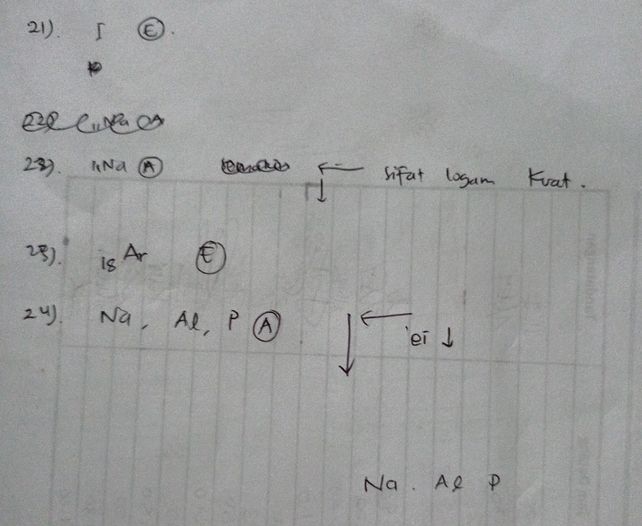 21). I Ⓔ.
22). ₁₁Na Ⓐ ← ↓ sifat logam kuat.
23). ₁₈Ar Ⓔ
24). Na, Al, P Ⓐ ↓ ← ei ↓
Na. Al P